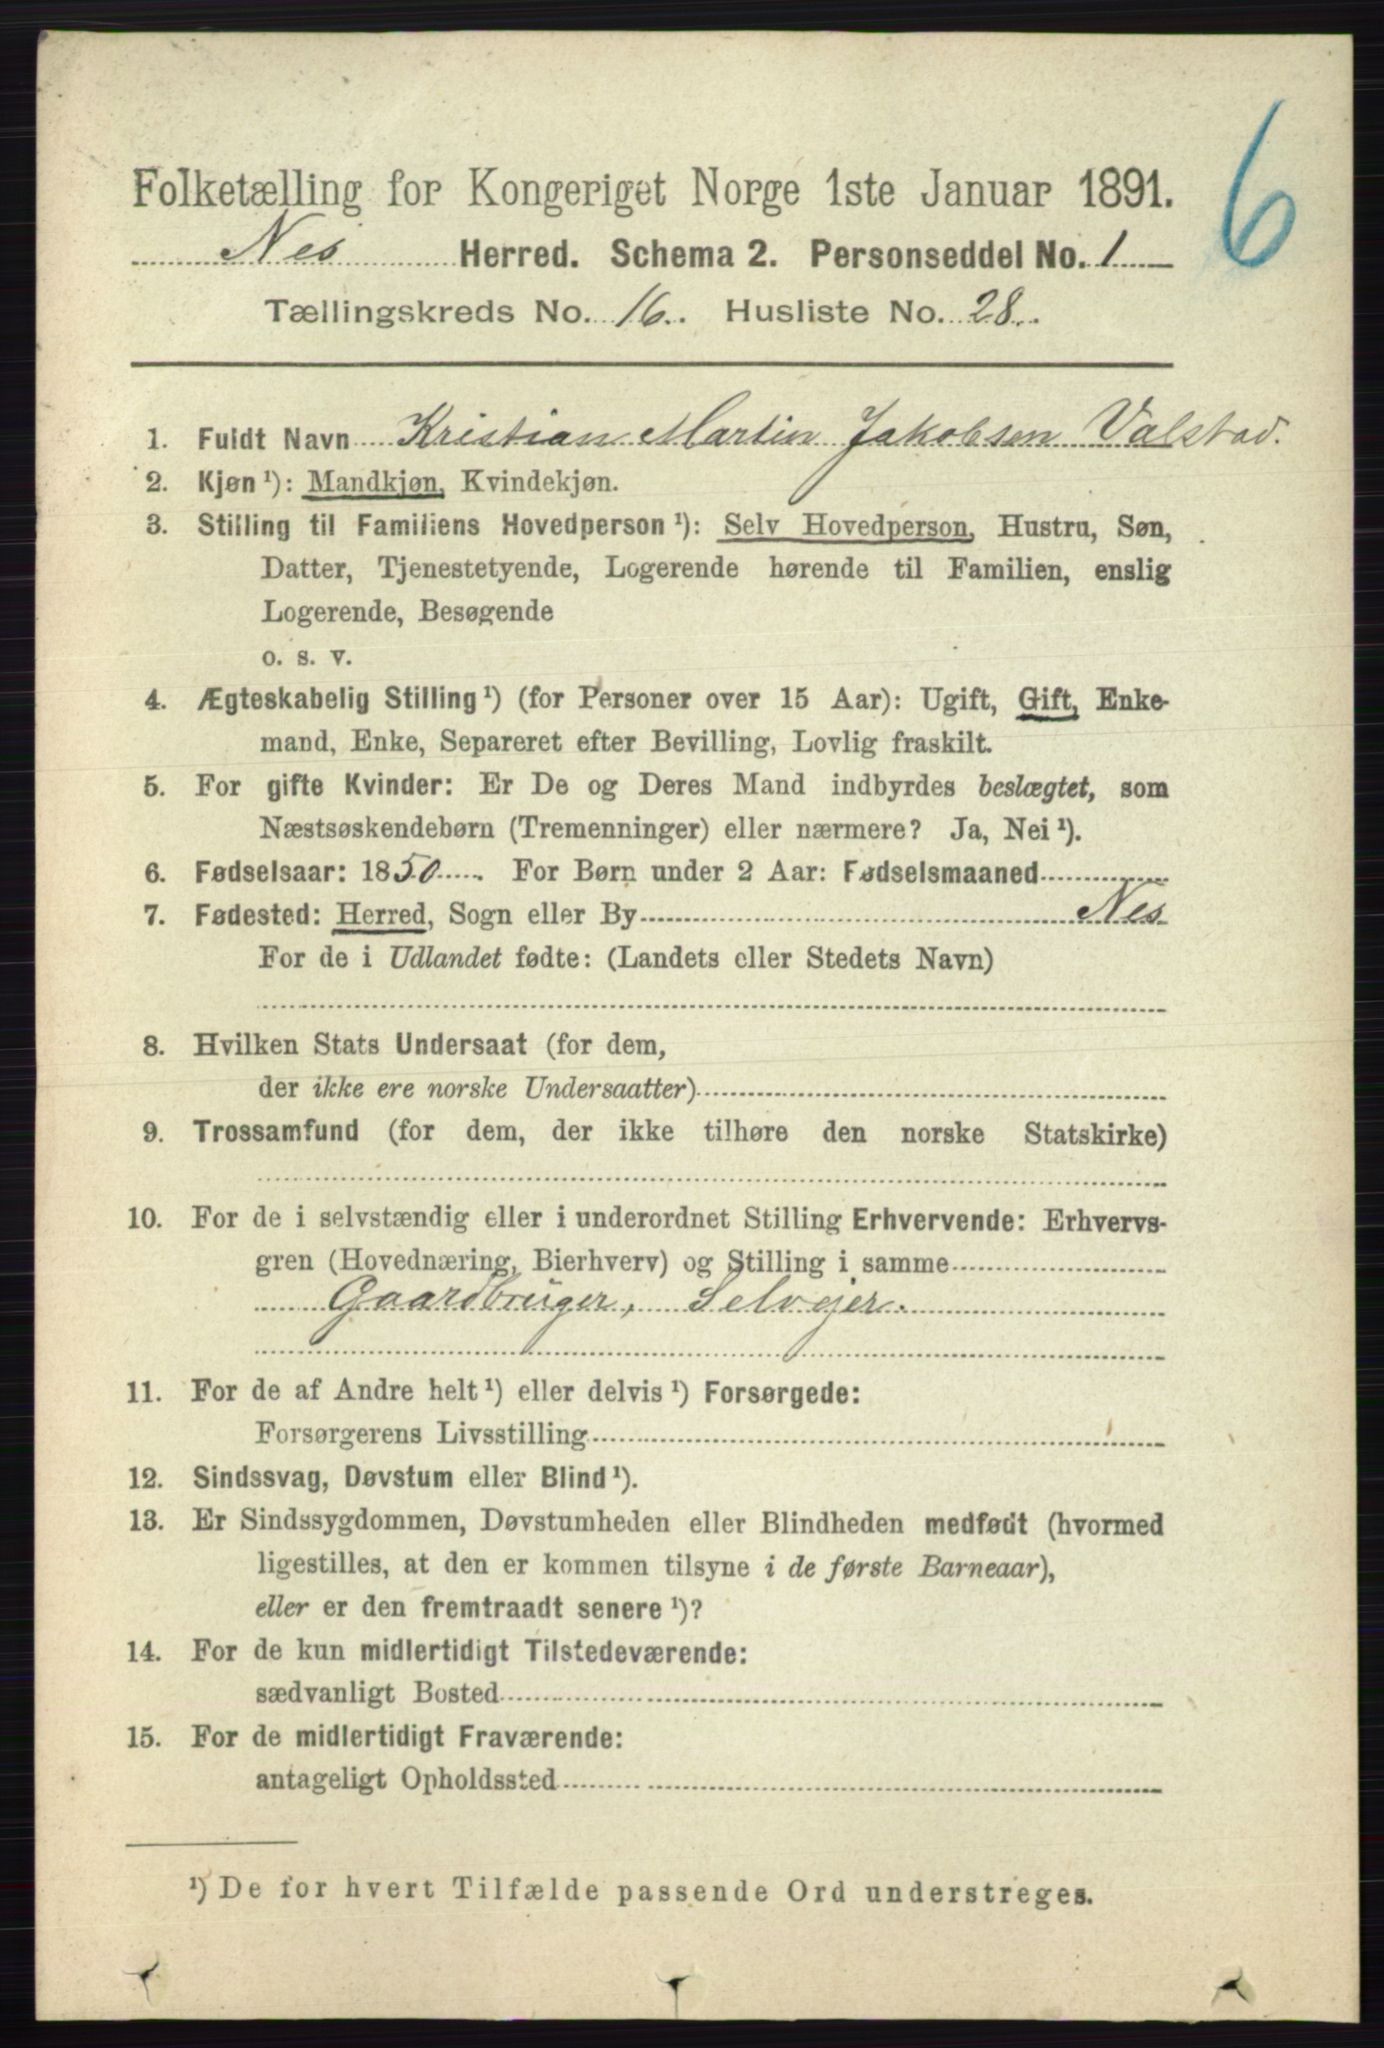 6
Folketælling for Kongeriget Norge 1ste Januar 1891.
Nes Herred. Schema 2. Personseddel No. 1
Tællingskreds No. 16. Husliste No. 28.
1. Fuldt Navn Kristian Martin Jakobsen Valstad.
2. Kjøn ¹): Mandkjøn, Kvindekjøn.
3. Stilling til Familiens Hovedperson ¹): Selv Hovedperson, Hustru, Søn,
Datter, Tjenestetyende, Logerende hørende til Familien, enslig
Logerende, Besøgende
o. s. v.
4. Ægteskabelig Stilling ¹) (for Personer over 15 Aar): Ugift, Gift, Enke-
mand, Enke, Separeret efter Bevilling, Lovlig fraskilt.
5. For gifte Kvinder: Er De og Deres Mand indbyrdes beslægtet, som
Næstsøskendebørn (Tremenninger) eller nærmere? Ja, Nei ¹).
6. Fødselsaar: 1850. For Børn under 2 Aar: Fødselsmaaned
7. Fødested: Herred, Sogn eller By Nes
For de i Udlandet fødte: (Landets eller Stedets Navn)
8. Hvilken Stats Undersaat (for dem,
der ikke ere norske Undersaatter)
9. Trossamfund (for dem, der ikke tilhøre den norske Statskirke)
10. For de i selvstændig eller i underordnet Stilling Erhvervende: Erhvervs-
gren (Hovednæring, Bierhverv) og Stilling i samme
Gaardbruger, Selvejer.
11. For de af Andre helt ¹) eller delvis ¹) Forsørgede:
Forsørgerens Livsstilling
12. Sindssvag, Døvstum eller Blind ¹).
13. Er Sindssygdommen, Døvstumheden eller Blindheden medfødt (hvormed
ligestilles, at den er kommen tilsyne i de første Barneaar),
eller er den fremtraadt senere ¹)?
14. For de kun midlertidigt Tilstedeværende:
sædvanligt Bosted
15. For de midlertidigt Fraværende:
antageligt Opholdssted
¹) De for hvert Tilfælde passende Ord understreges.